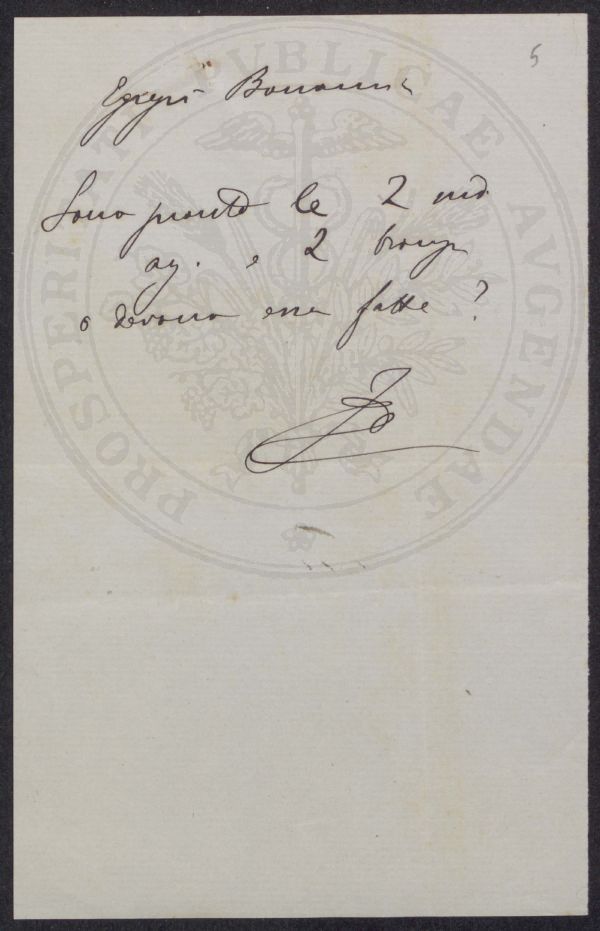 5
Egregi Bonomi
Sono pronte le 2 med.
ag. e 2 bronzo
o devono esser fatte ?
PROSPERITATI PUBLICAE AVGENDAE